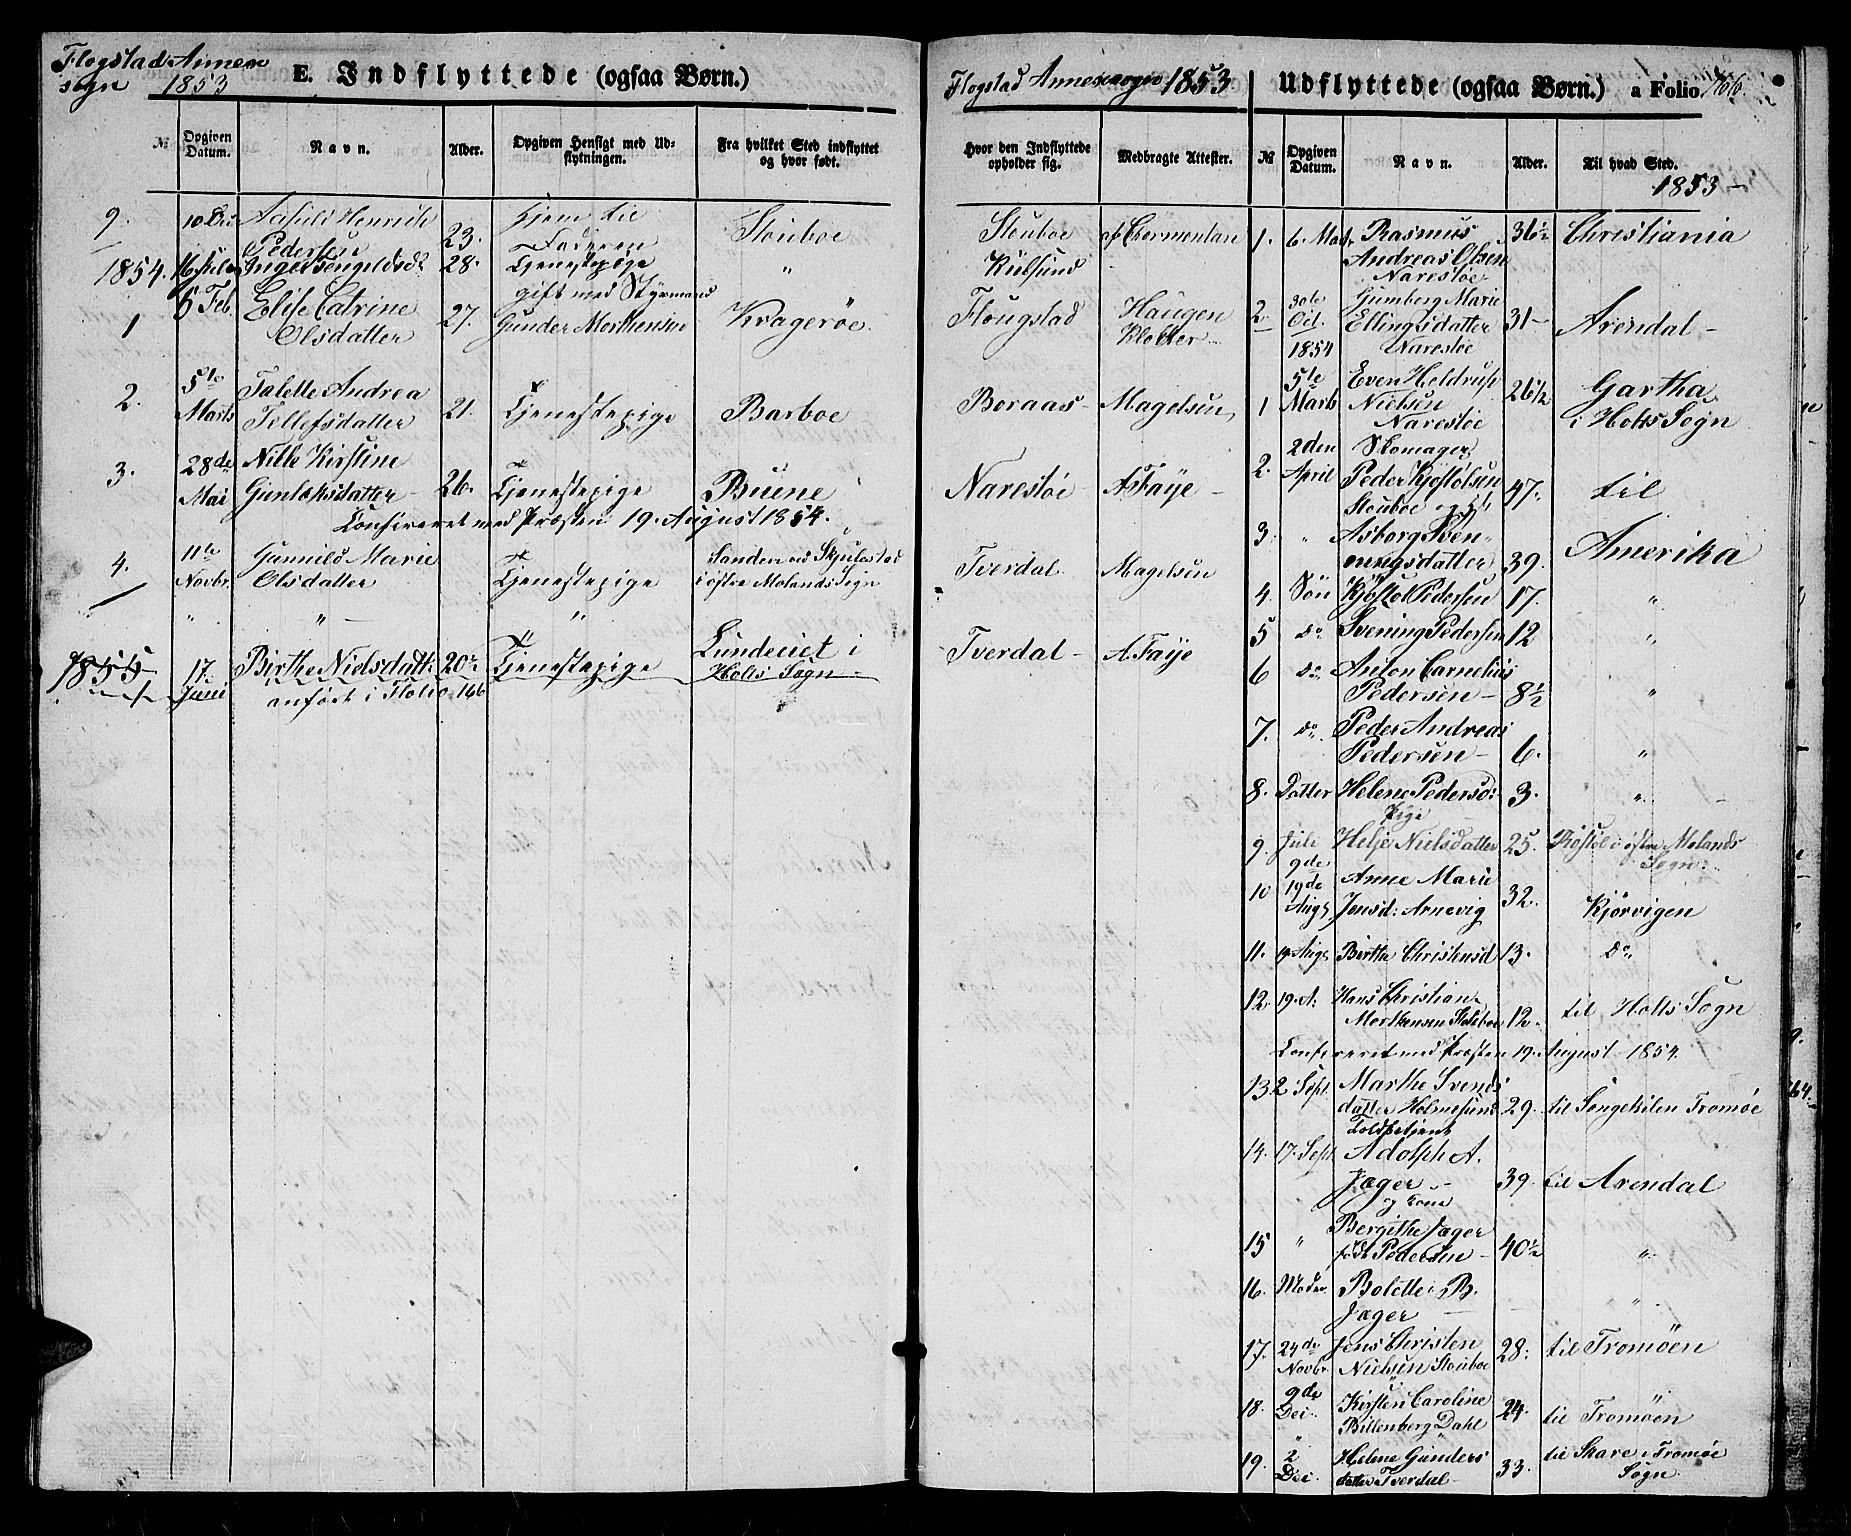 Flogstad Annex
sogn 1853
E. Indflyttede (ogsaa Børn.)
№
Opgiven Datum.
Navn.
Alder.
Opgiven Hensigt med Udflytningen.
Fra hvilket Sted indflyttet og hvor født.
9.
Pedersen
23.
Hjem til
Faderen
Stouboe
1854.
28.
Tjenestepige
"
1
6 Feb
Elise Catrine
Olsdatter
27.
gift med Styrmand
Gunder Morthensen
Kragerøe
2.
5te
Marts
Talette Andrea
Tellefsdatter
21.
Tjenestepige
Barboe
3.
28de
Mai
Nille Kirstine
Gunlaksdatter
26.
Tjenestepige
Buene
Confereret med Præsten 19. August 1854.
4.
11te
Novbr.
Gunnild Marie
Olsdatter
Tjenestepige
Sanden ved
i østre Molands Sogn
"
"
"
1855
17.
Juni
Birthe Nielsdatt.
20½
Tjenestepige
Lundeviet i
Holts Sogn
anført i Folio 166
Flogstad Annexsogn 1853
Hvor den Indflyttede opholder sig.
Medbragte Attester.
Stouboe
Kilsund
Flougstad
Haugen
Klokker
Boraas
Magelsen
Narestøe
A Faye
Tverdal
Magelsen
Tverdal
A. Faye
Udflyttede (ogsaa Børn.) a Folio
№
Opgiven Datum.
Navn.
Alder.
Til hvad Sted.
1853
1.
6.
Rasmus
Andreas Olsen
Narestøe
36½
Christiania
2.
30te
Oct.
Gumberg Marie
Ellingsdatter
Narestøe
31
Arendal
1854
1
5te
Marts
Even Heldrup
Nielsen
Narestøe
26½
Gartha
i Holts Sogn
2.
2den
April
Skomager
Peder Kjøstolsen
Stouboe
47.
til
3.
"
Asborg Svenningsdatter
39.
Amerika
4.
Søn
Kjøstol Pedersen
17.
"
5
do
Svening Pedersen
12
"
6
do
Anton Carnelius
Pedersen
8½
"
7.
do
Peder Andreas
Pedersen
6.
"
8.
Datter
Helene Pedersd:
3.
"
Pige
9.
Juli
9de
Helje Nielsdatter
25.
i østre Molands
Sogn
10
19de
Aug
Anne Marie
Jensd: Arnevig
32.
Kjørvigen
11.
19 Aug
Birthe Christensd
13.
do
12.
19. A:
Hans Christian
Morthensen Stouboe
12
til Holts Sogn
Confereret med Præsten 19. August 1854.
13
2 Sept
Marthe Svends
datter Holmesund
29.
til Songekilen Tromøe
Toldbetjent
14.
17. Sept
Adolph A.
Jæger
og Kone
39.
til Arendal
15
"
Bergithe Jæger
født Pedersen
40½
"
16.
Moder
Bolette B.
Jæger
"
17.
24de
Novbr.
Jens Christen
Nielsen Stouboe
28.
til Tromøen
18.
9de
Dei
Kirsten Caroline
Billenberg Dahl
24.
til Tromøen
19.
2
Dei
Helene Gunders
datter Tverdal
33.
til Skare i Tromøe
Sogn